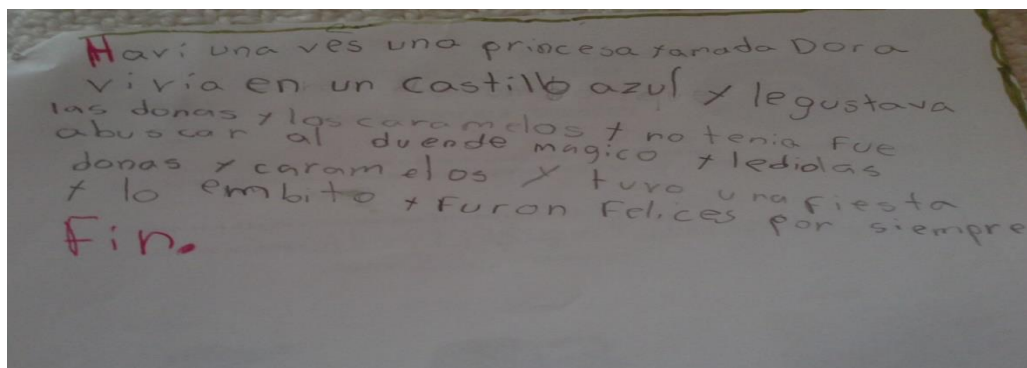 Havi una ves una princesa yamada Dora
vivía en un castillo azul y legustava
las donas y los caramelos y no tenia fue
abuscar al duende magico y lediolas
donas y caramelos y tuvo una fiesta
y lo embito y furon felices por siempre
Fin.